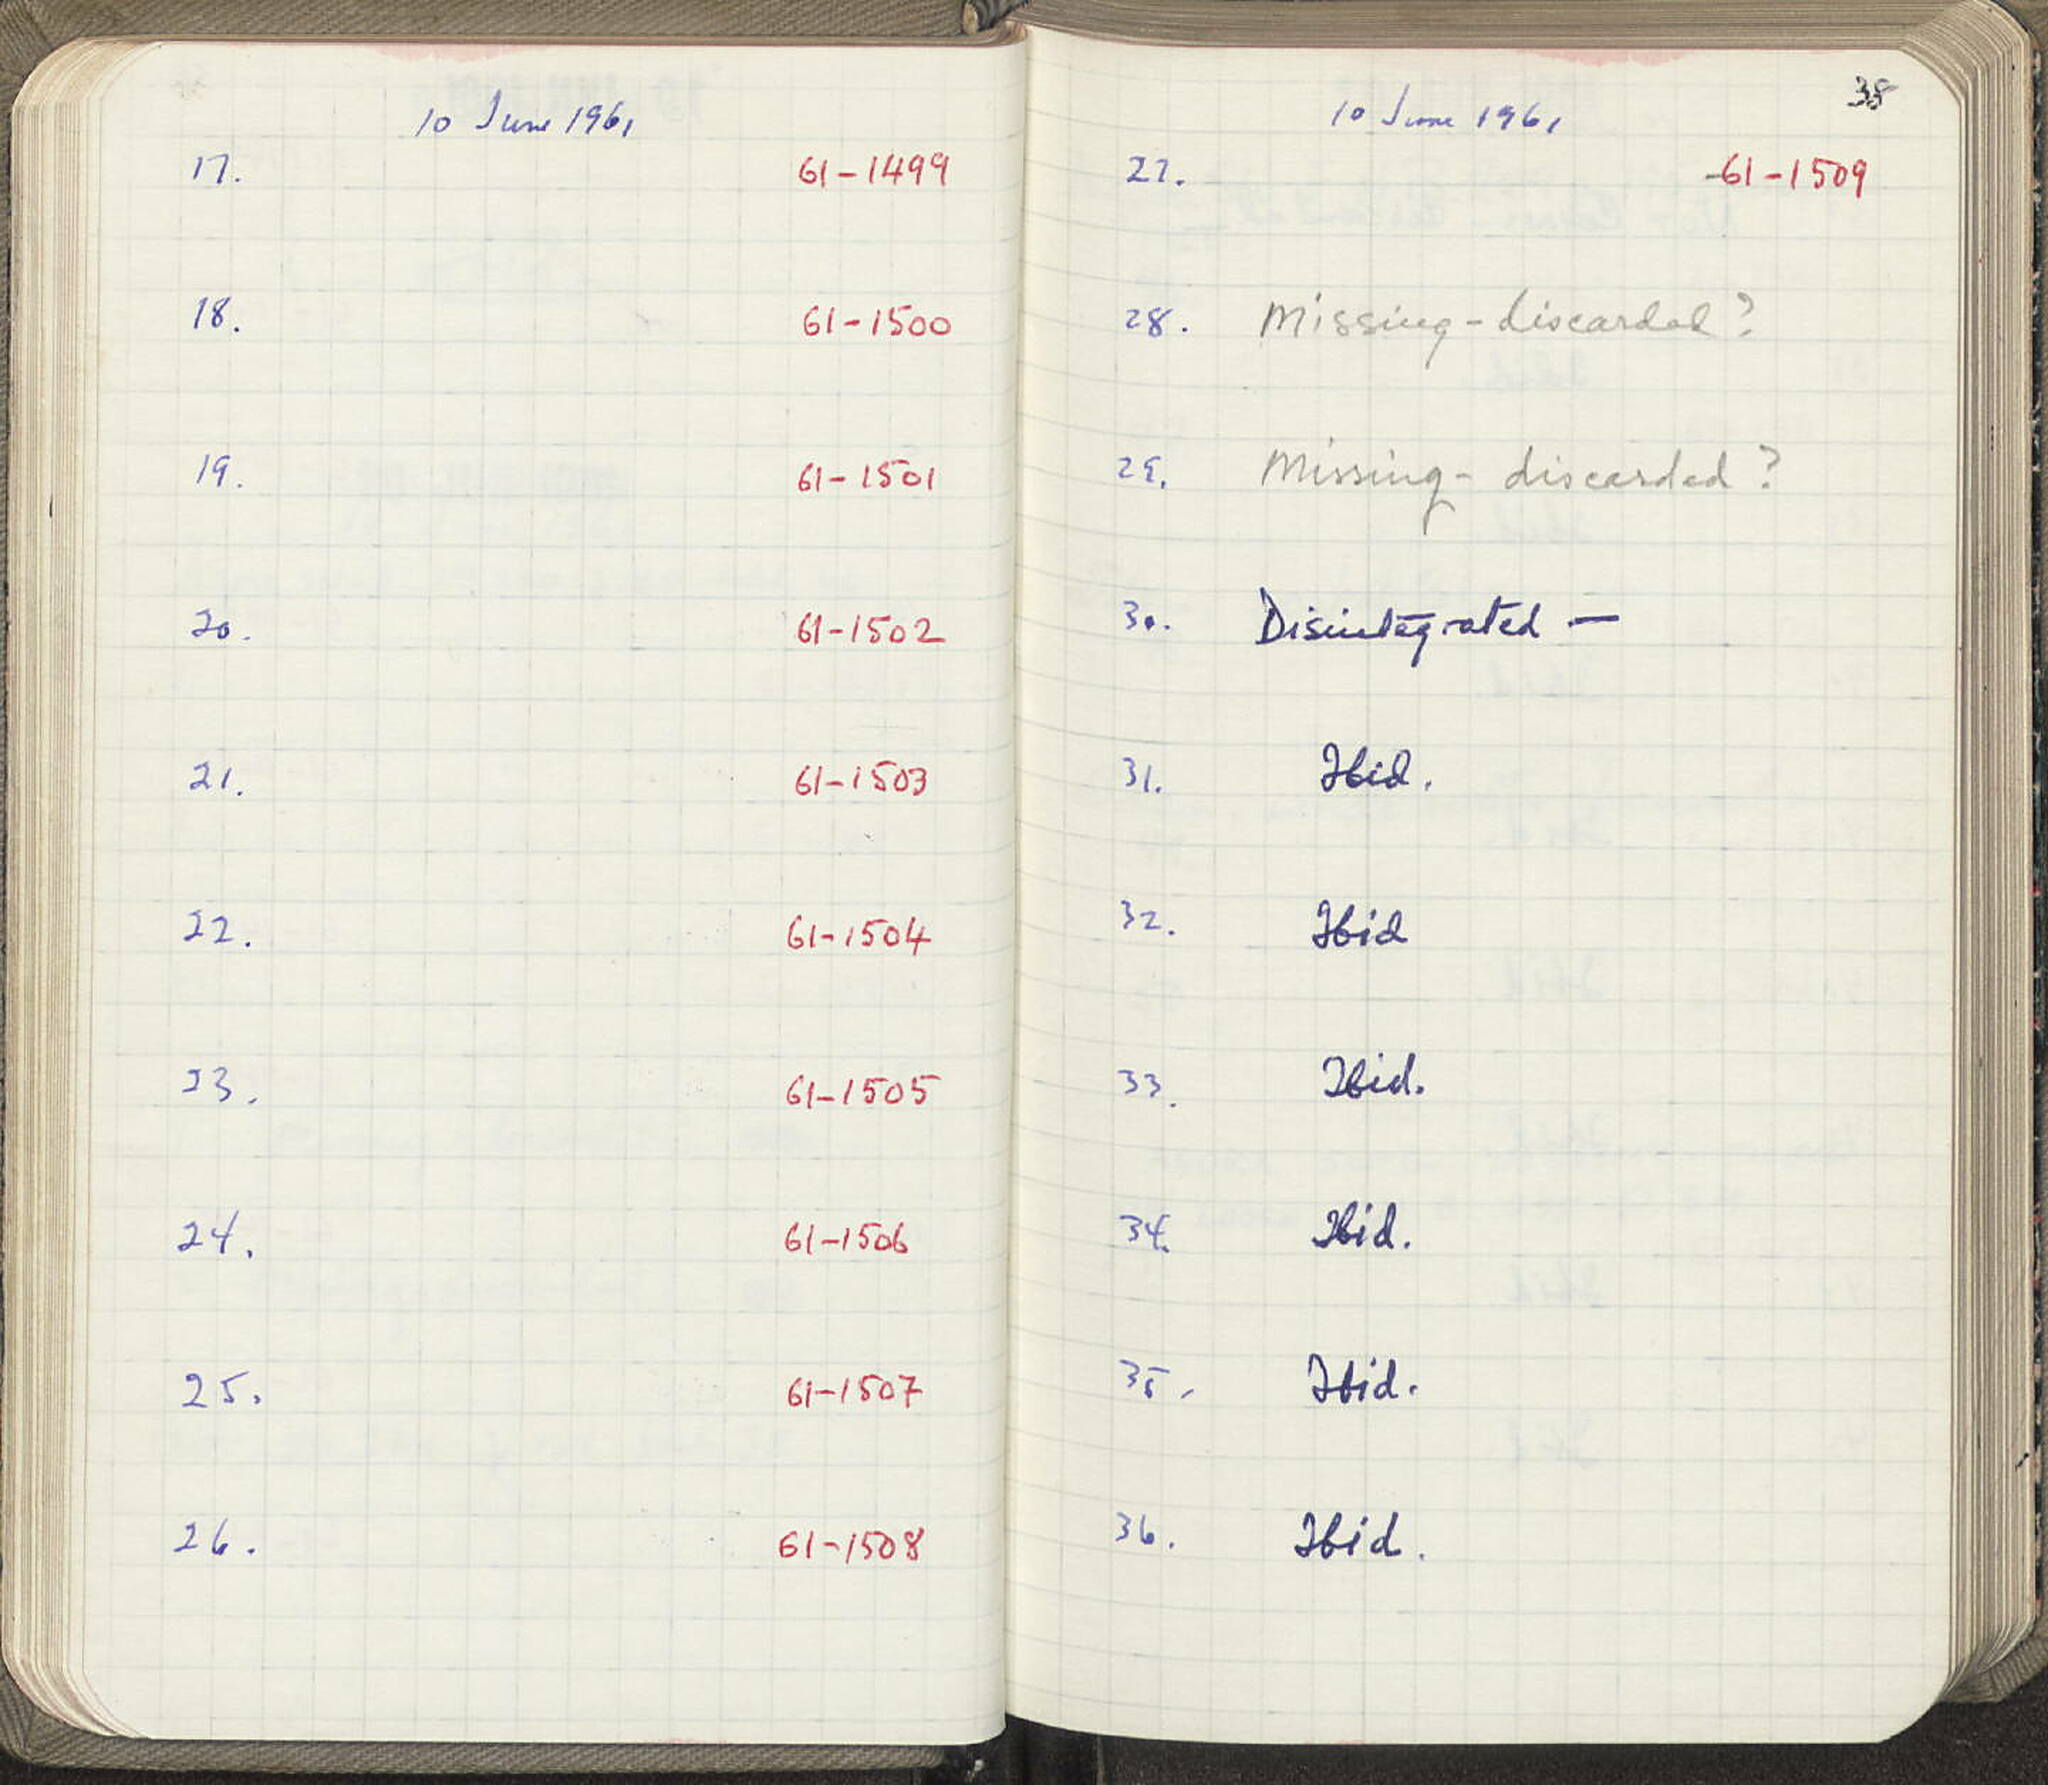 10 June 1961
17. 61-1499
18. 61-1500
19. 61-1501
20. 61-1502
21. 61-1503
22. 61-1504
23. 61-1505
24. 61-1506
25. 61-1507
26. 61-1508
38
10 June 1961
27. -61-1509
28. Missing-discarded?
29. Missing- discarded?
30. Disintegrated —
31. Ibid.
32. Ibid
33. Ibid.
34. Ibid.
35. Ibid.
36. Ibid.